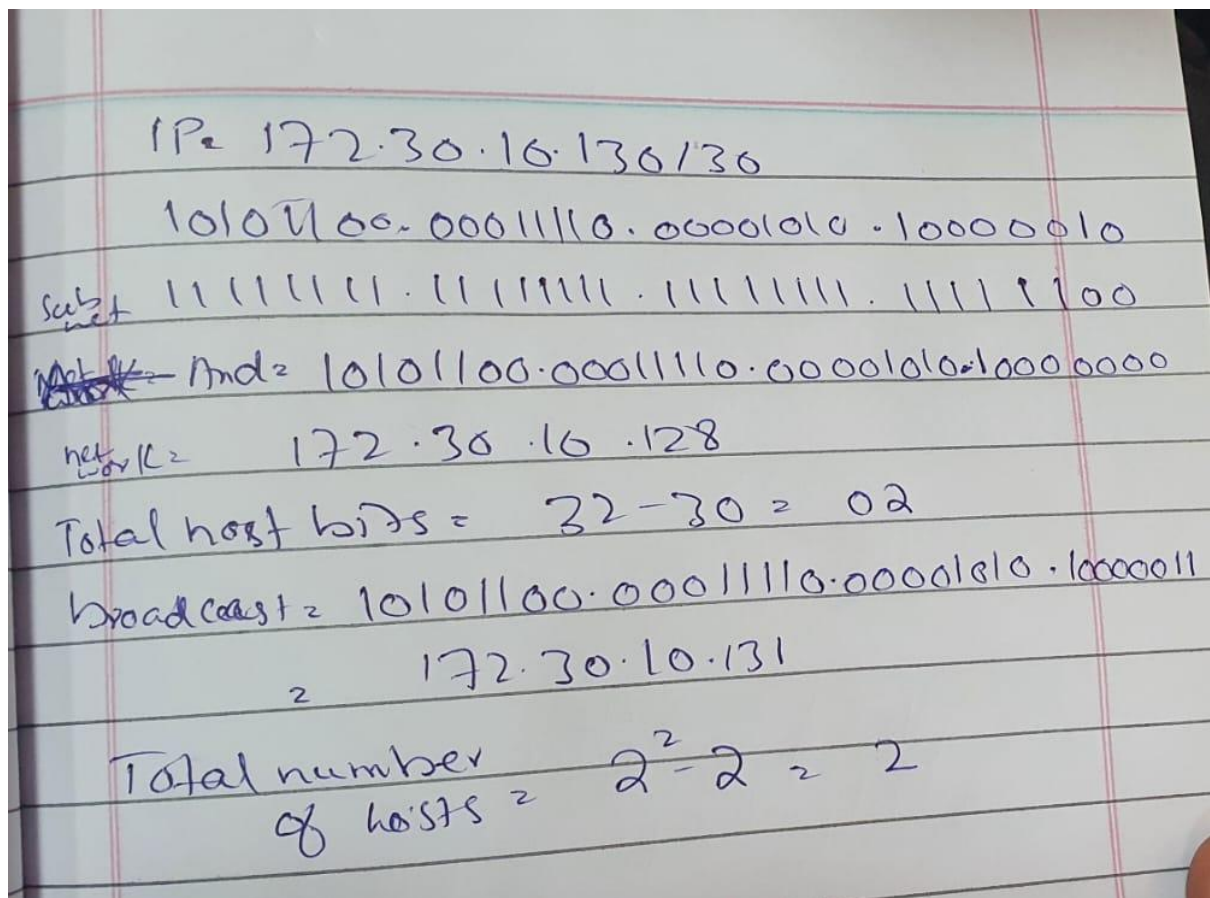 IP= 172.30.10.130/30
10101100.00011110.00001010.10000010
subnet 11111111.11111111.11111111.11111100
And= 10101100.00011110.00001010.10000000
network= 172.30.10.128
Total host bits = 32-30= 02
broadcast= 10101100.00011110.00001010.10000011
= 172.30.10.131
Total number
of hosts = 2²-2 = 2